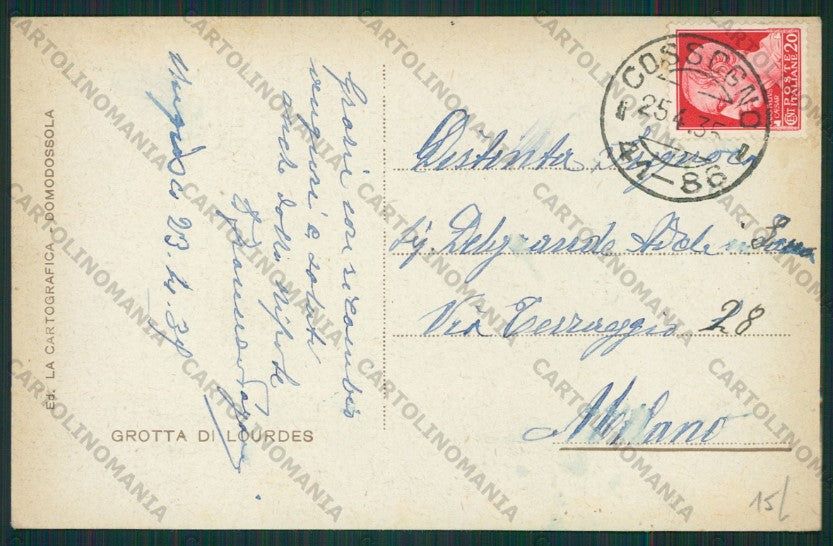 COSSOGNO
25.4.35
41-86
POSTE
ITALIANE 20
CENT
CAESAR
Distinta Signora
Sig. Delgrande Adele in
Via Terraggio 28
Milano
Grazie con ricambio
auguri e saluti
anche dalla Nipote
23.4.
GROTTA DI LOURDES
Ed. LA CARTOGRAFICA - DOMODOSSOLA
15/
CARTOLINOMANIA